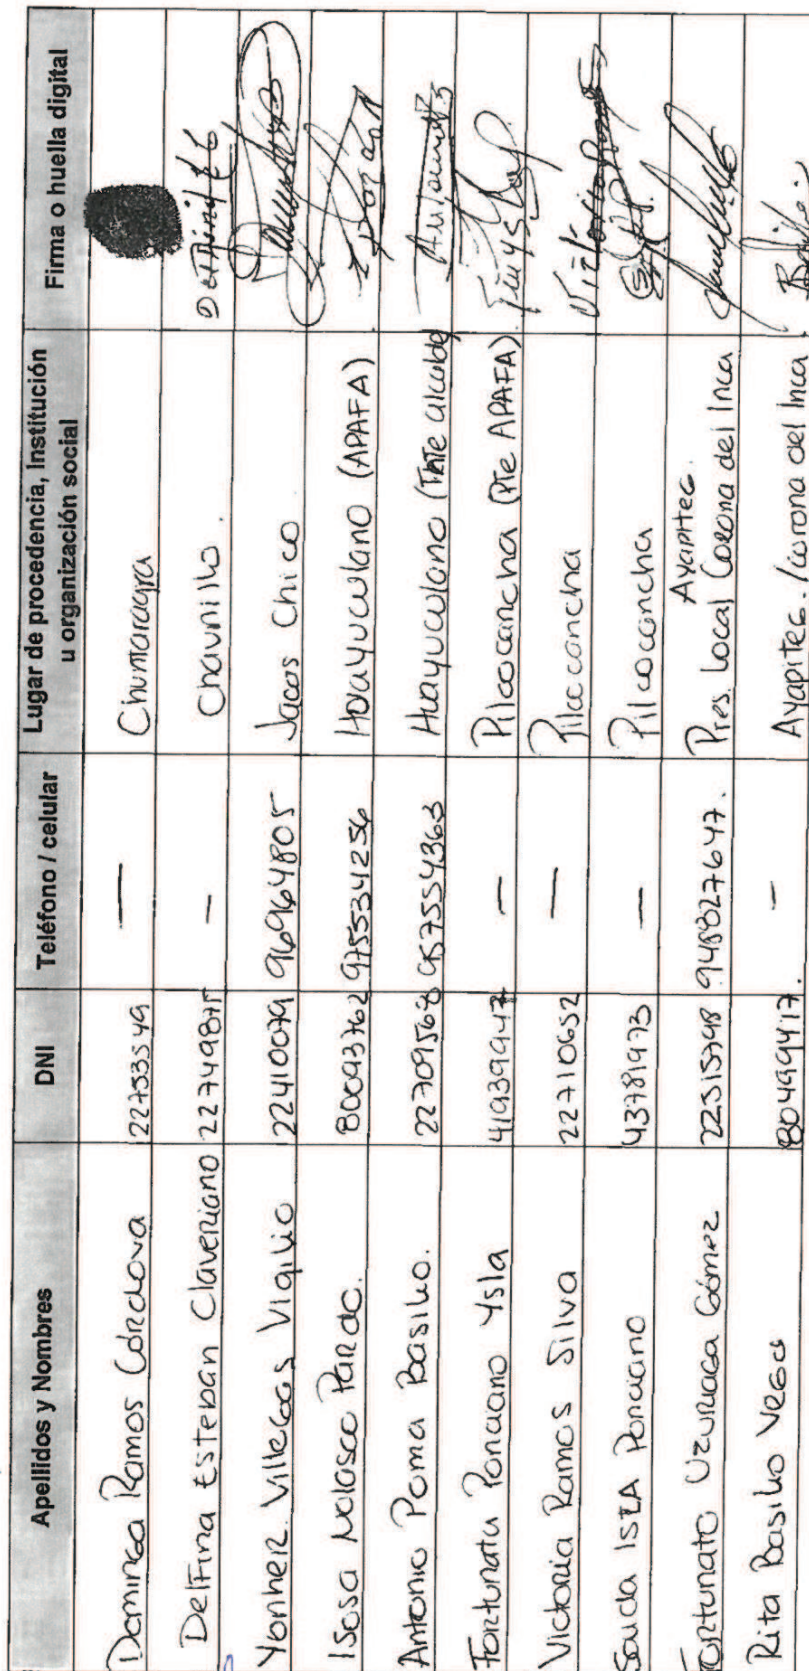 Apellidos y Nombres DNI Teléfono / celular Lugar de procedencia, Institución Firma o huella digital
u organización social
Dominga Ramos Cordova 22753549 — Chuntaragra
Delfina Esteban Claveriano 22749875 — Chavnillo.
Yonher Villegas Vigilio 22410079 969964805 Jacas Chico
Isosa Nolasco Pardo. 80093762 975534256 Huayuculano (APAFA)
Antonio Poma Basilio. 22709568 957554363 Huayuculano (Tnte alcalde
Fortunata Ponciano Ysla 41939947 — Pilcocancha (Pte APAFA).
Victoria Ramos Silva 22710652 — Pilcocancha
Saida Isla Ponciano 43781973 — Pilcocancha
Ayapitec.
Fortunato Uzuriaga Gómez 22515798 948827647. Pres. Local Corona del Inca
Rita Basilio Vega 80499417. — Ayapitec. / corona del Inca